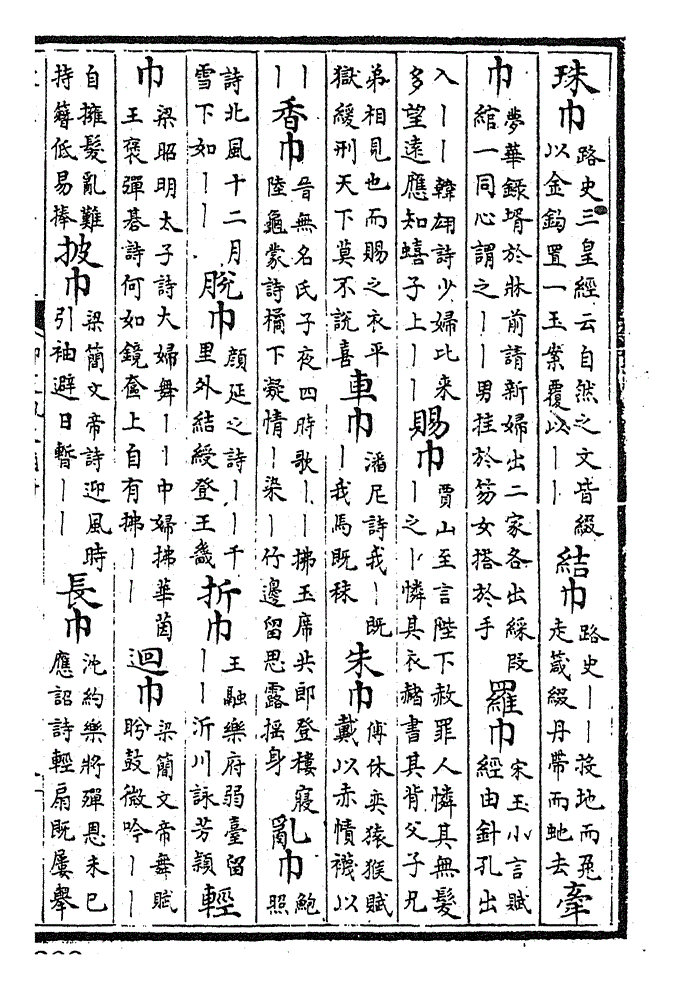 珠巾 路史三皇經云自然之文皆綴以金鈎置一玉案覆以丨丨 結巾 路史丨丨投地而兎走箴綴丹帶而虵去 牽
巾 夢華録壻於牀前請新婦出二家各出綵段綰一同心謂之丨丨男挂於笏女搭於手 羅巾 宋玉小言賦經由針孔出
入丨丨韓翃詩少婦比来多望遠應知蟢子上丨丨 賜巾 賈山至言陛下赦罪人憐其無髮丨之丨憐其衣赭書其背父子兄
弟相見也而賜之衣平獄緩刑天下莫不說喜 車巾 潘尼詩我丨既丨我馬既秣 朱巾 傅休奕猿猴賦戴以赤幘襪以
丨丨 香巾 晉無名氏子夜四時歌丨丨拂玉席共郎登樓寢陸龜蒙詩橘下凝情丨染丨伫邊留思露揺身 亂巾 鮑照
詩北風十二月雪下如丨丨 脫巾 顔延之詩丨丨千里外結綬登王畿 折巾 王融樂府弱臺留丨丨沂川詠芳頴 輕
巾 梁昭明太子詩大婦舞丨丨中婦拂華茵王褒彈碁詩何如鏡奩上自有拂丨丨 迴巾 梁簡文帝舞賦盻鼓微吟丨丨
自擁髮亂難持簮低易捧 披巾 梁簡文帝詩迎風時引袖避日暫丨丨 長巾 沈約樂將殫恩未已應詔詩輕扇既屢舉